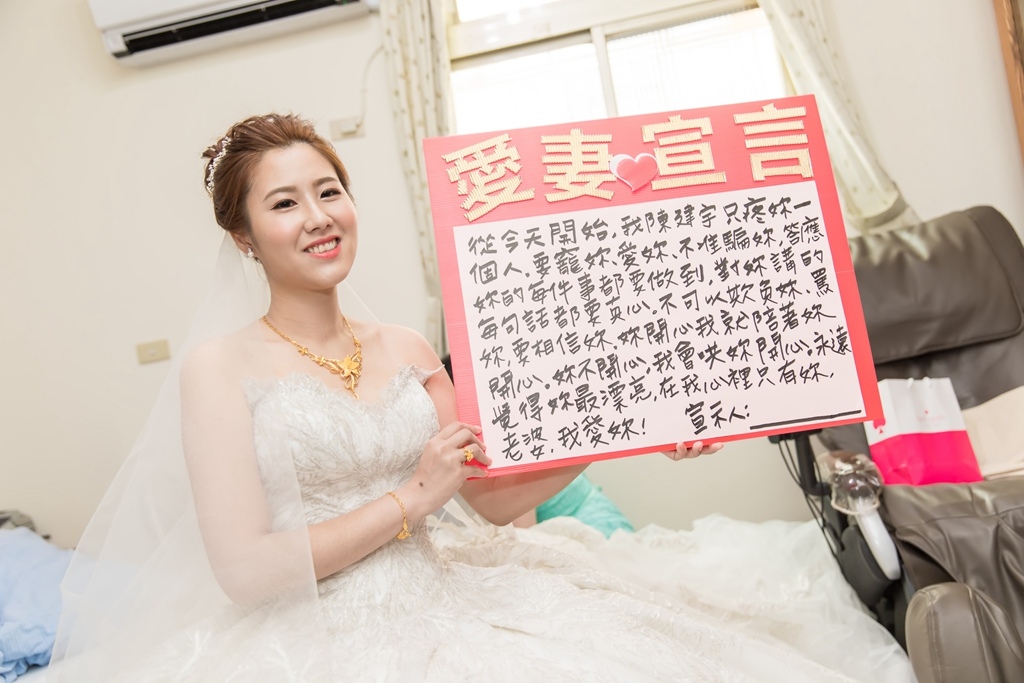 愛妻宣言
從今天開始,我陳建宇只疼妳一
個人.要寵妳.愛妳.不准騙妳,答應
妳的每件事都要做到,對妳講的
每句話都要真心.不可以欺負妳、罵
妳.要相信妳.妳開心我就陪著妳
開心.妳不開心.我會哄妳開心.永遠
覺得妳最漂亮,在我心裡只有妳.
老婆,我愛妳! 宣示人: